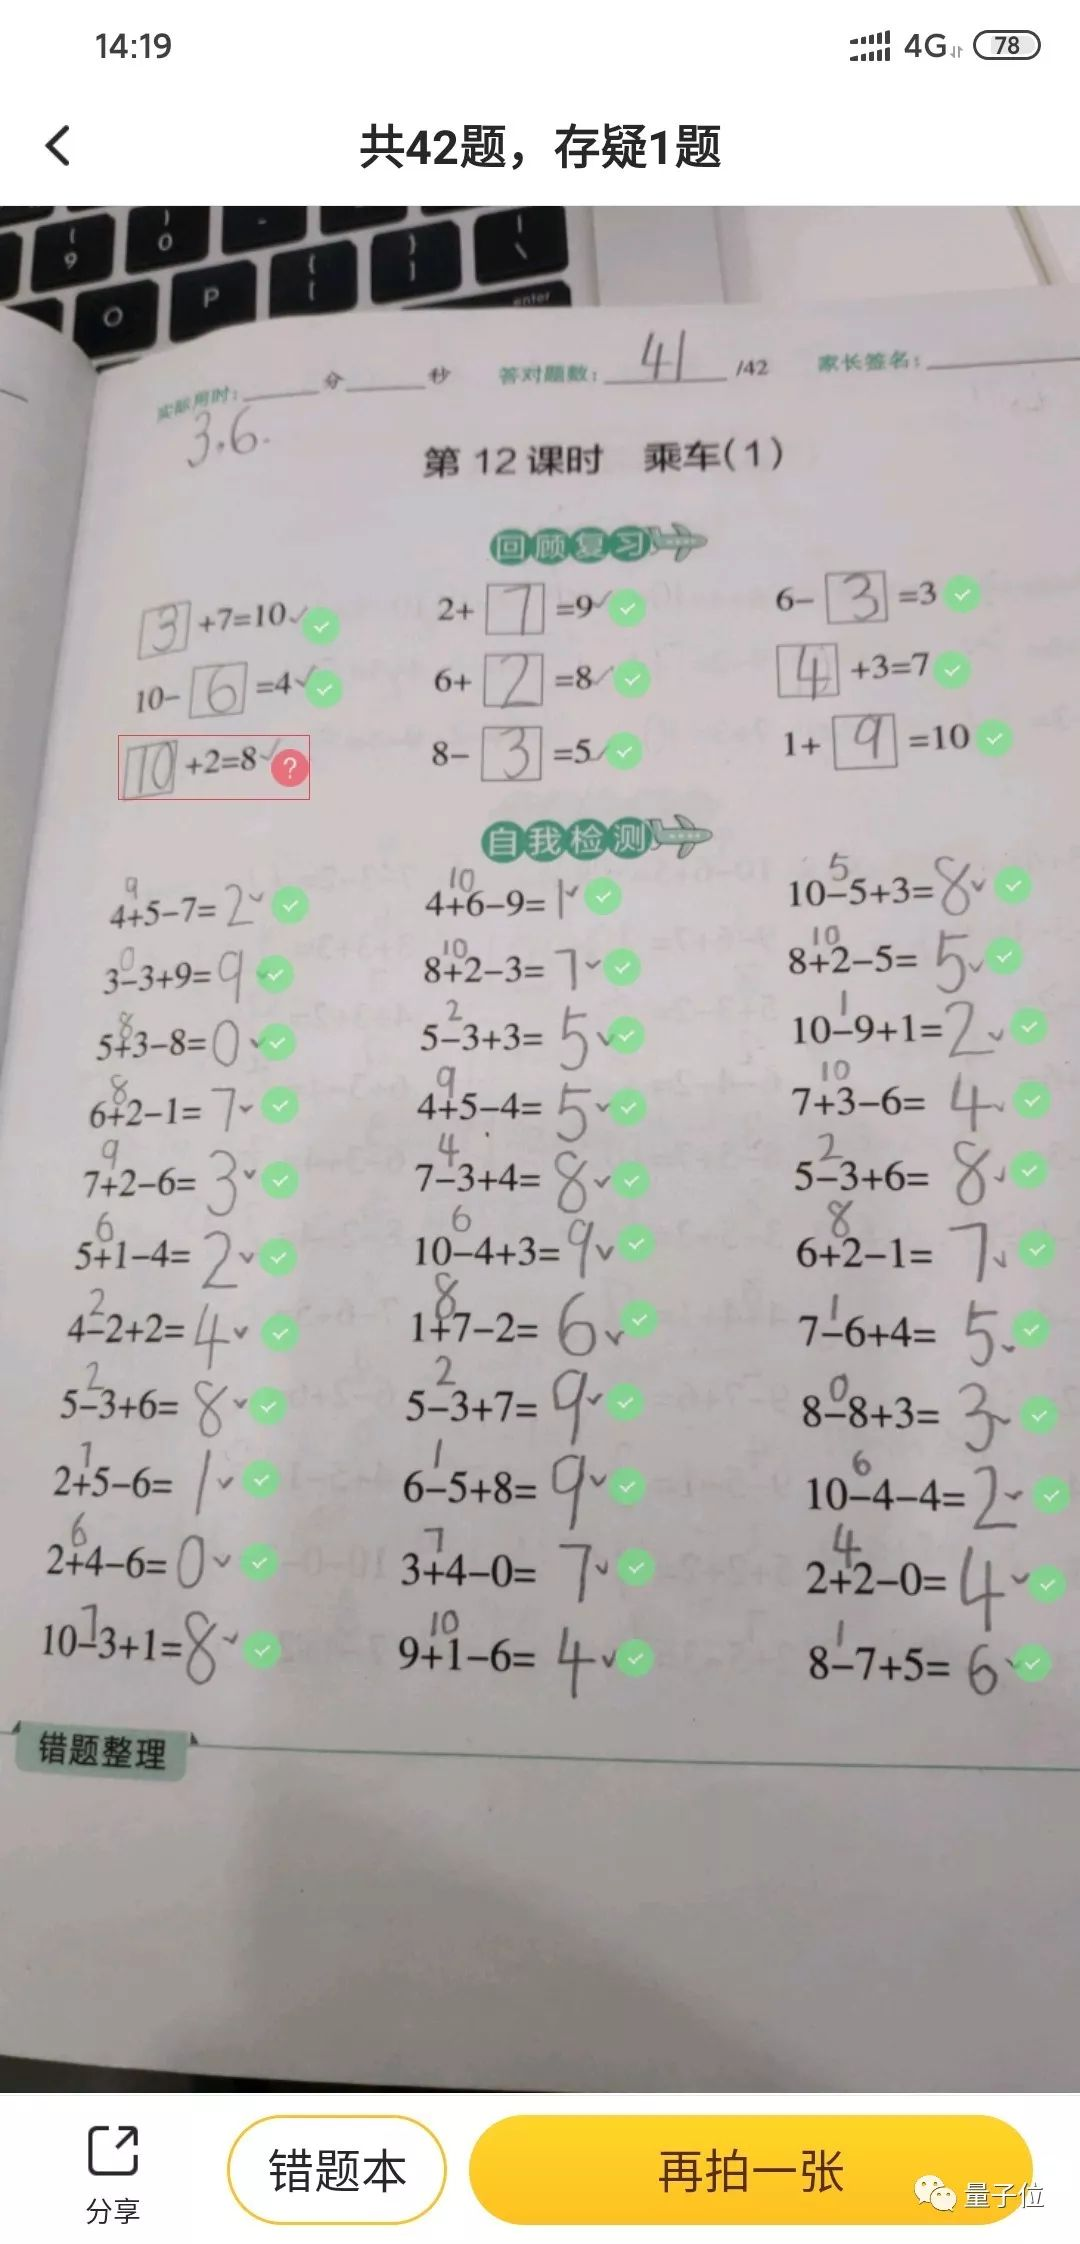 14:19 4G 78
共42题，存疑1题
( 9 ) 0 - | \
O P { [ } ] enter
实际用时：____分____秒 答对题数：41/42 家长签名：____
3.6.
第 12 课时 乘车(1)
回顾复习
3+7=10 2+7=9 6-3=3
10-6=4 6+2=8 4+3=7
10+2=8 ? 8-3=5 1+9=10
自我检测
9 10 5
4+5-7=2 4+6-9=1 10-5+3=8
0 10 10
3-3+9=9 8+2-3=7 8+2-5=5
8 2 1
5+3-8=0 5-3+3=5 10-9+1=2
8 9 10
6+2-1=7 4+5-4=5 7+3-6=4
9 4 2
7+2-6=3 7-3+4=8 5-3+6=8
6 6 8
5+1-4=2 10-4+3=9 6+2-1=7
2 8 1
4-2+2=4 1+7-2=6 7-6+4=5
2 2 0
5-3+6=8 5-3+7=9 8-8+3=3
7 1 6
2+5-6=1 6-5+8=9 10-4-4=2
6 7 4
2+4-6=0 3+4-0=7 2+2-0=4
7 10 1
10-3+1=8 9+1-6=4 8-7+5=6
错题整理
分享 错题本 再拍一张
量子位